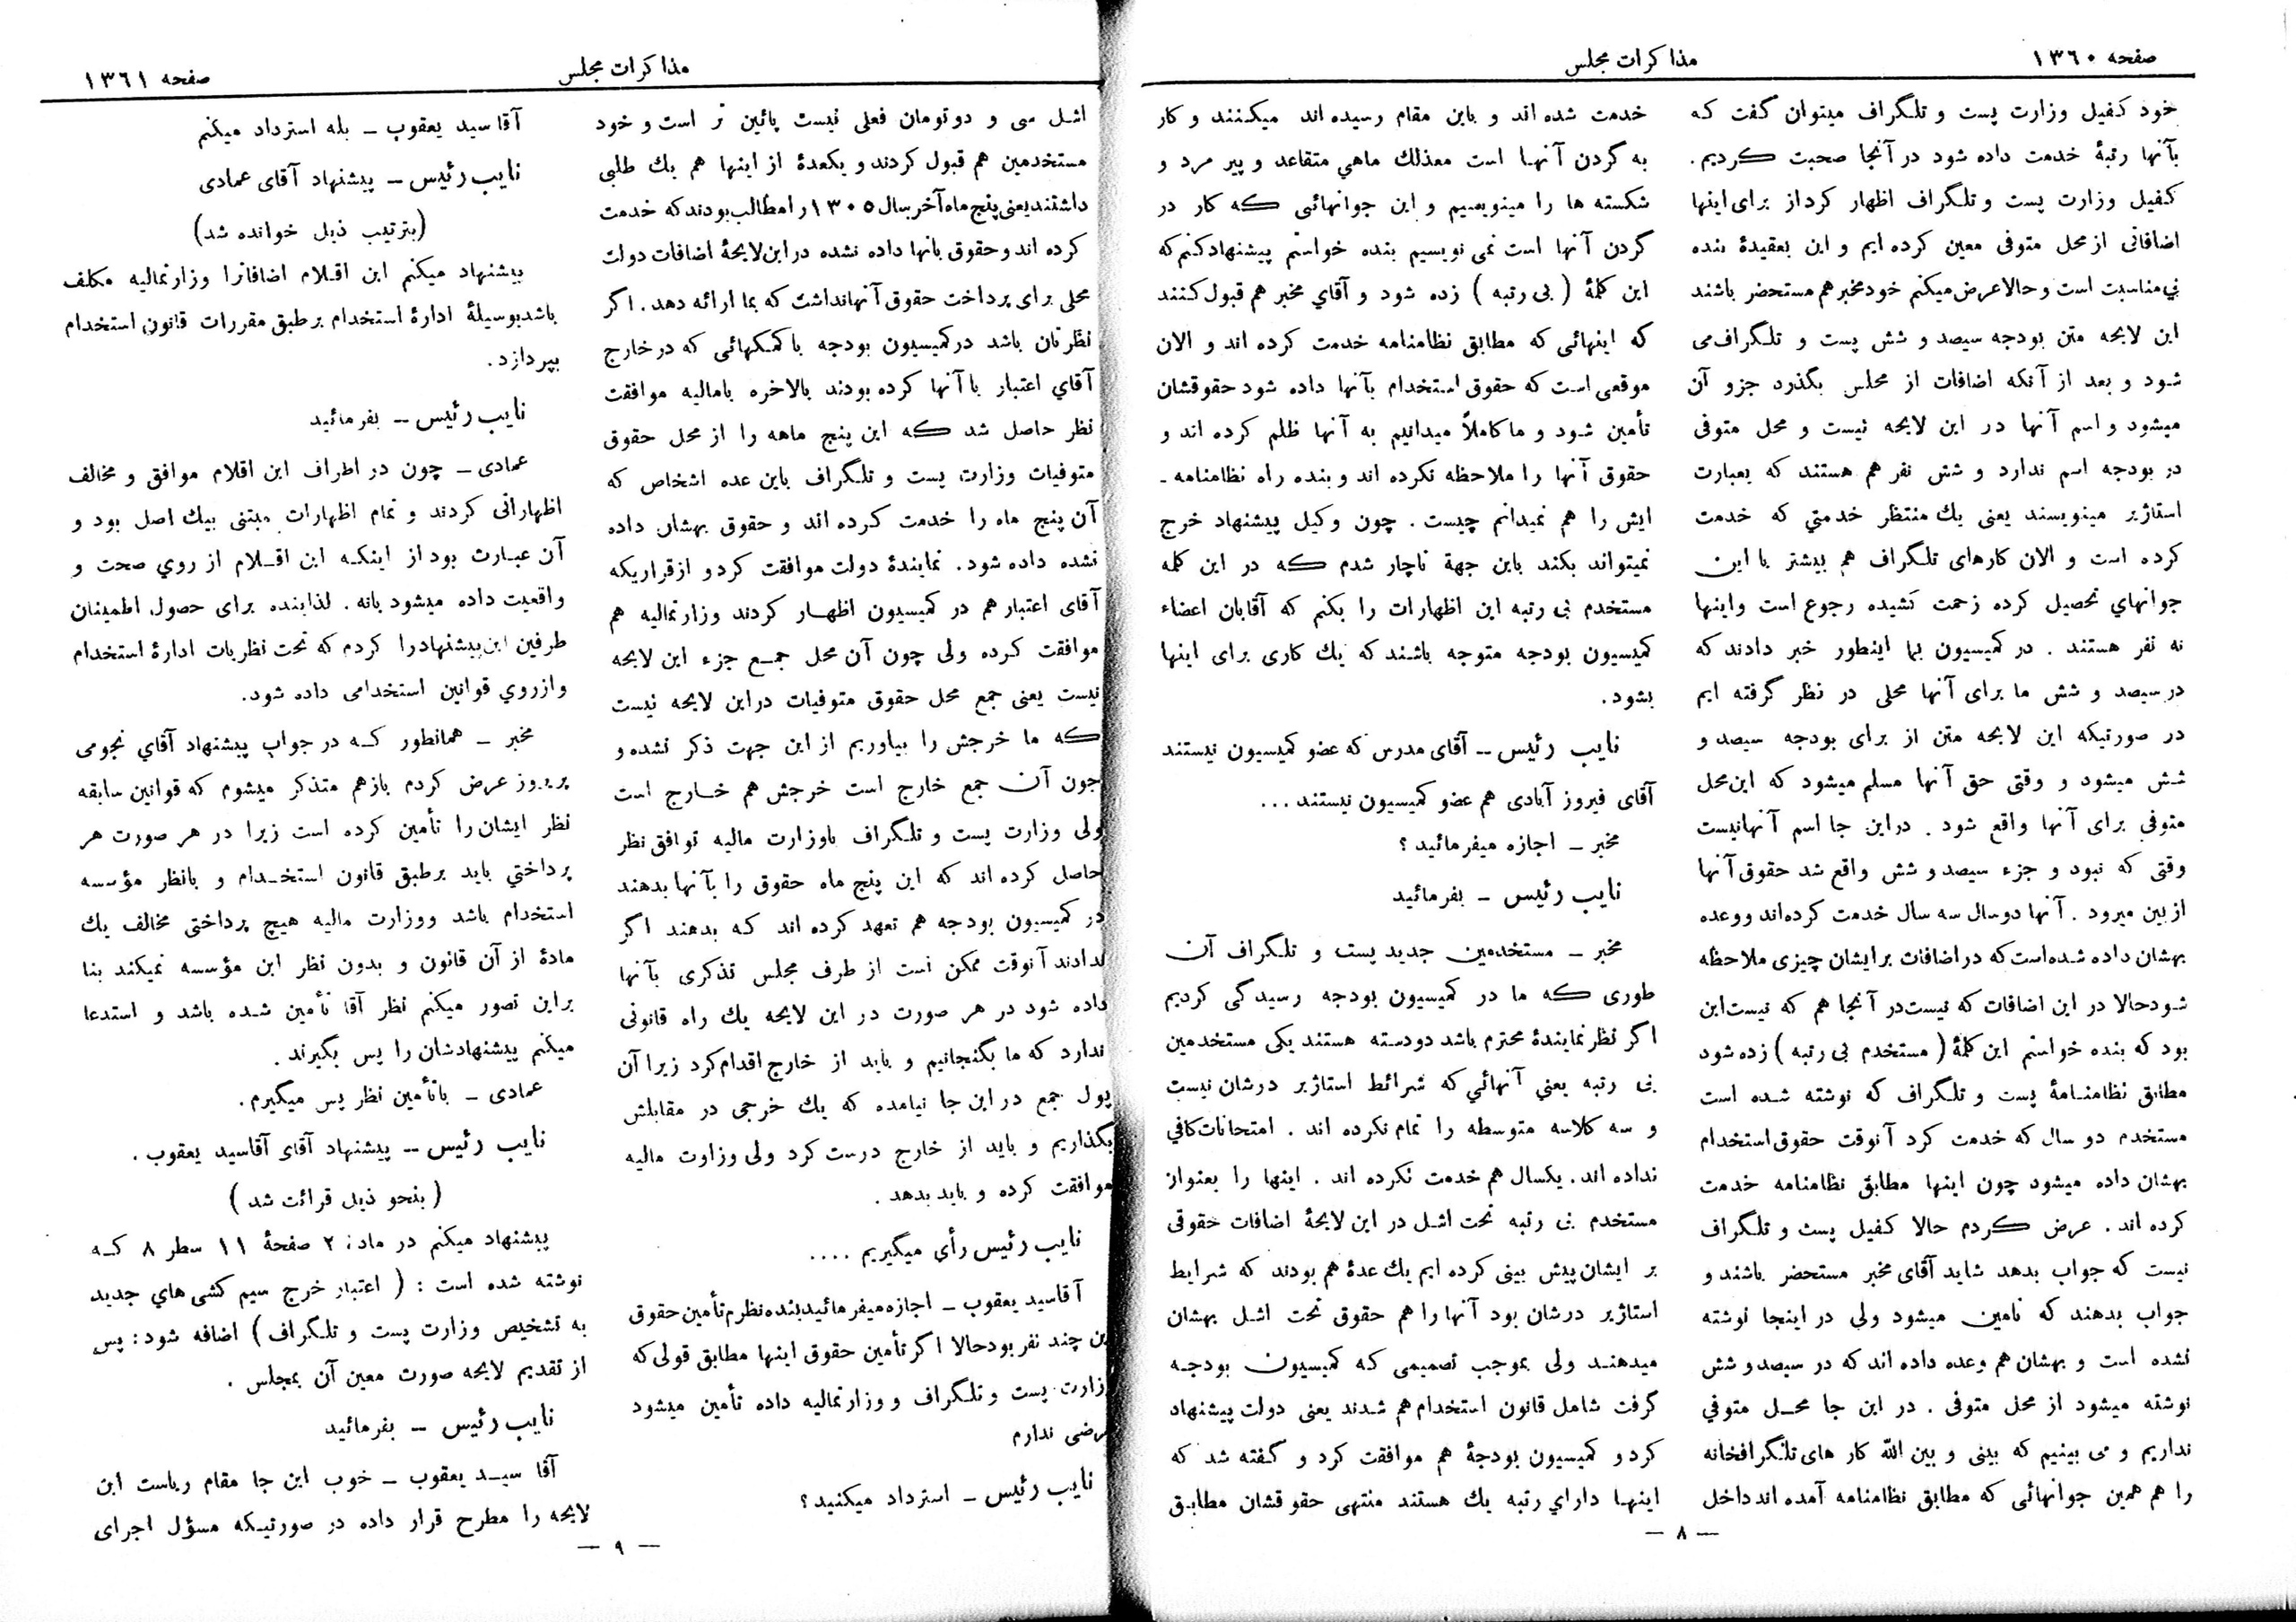 صفحه ۱۳۶۰
مذاکرات مجلس
خود کفیل وزارت پست و تلگراف میتوان گفت که
بآنها رتبهٔ خدمت داده شود در آنجا صحبت کردیم.
کفیل وزارت پست و تلگراف اظهار کرد از برای اینها
اضافاتی از محل متوفی معین کرده ایم و این بعقیدهٔ بنده
بی مناسبت است و حالا عرض میکنم خود مخبر هم مستحضر باشند
این لایحه متن بودجه سیصد و شش پست و تلگراف می
شود و بعد از آنکه اضافات از مجلس بگذرد جزو آن
میشود و اسم آنها در این لایحه نیست و محل متوفی
در بودجه اسم ندارد و شش نفر هم هستند که بعبارت
استاژیر مینویسند یعنی یك منتظر خدمتی که خدمت
کرده است و الان کارهای تلگراف هم بیشتر با این
جوانهای تحصیل کرده زحمت کشیده رجوع است و اینها
نه نفر هستند . در کمیسیون بما اینطور خبر دادند که
در سیصد و شش ما برای آنها محلی در نظر گرفته ایم
در صورتیکه این لایحه متن از برای بودجه سیصد و
شش میشود و وقتی حق آنها مسلم میشود که این محل
متوفی برای آنها واقع شود . در این جا اسم آنها نیست
وقتی که نبود و جزء سیصد و شش واقع شد حقوق آنها
از بین میرود . آنها دو سال سه سال خدمت کرده اند و وعده
بهشان داده شده است که در اضافات برایشان چیزی ملاحظه
شود حالا در این اضافات که نیست در آنجا هم که نیست این
بود که بنده خواستم این کلمهٔ ( مستخدم بی رتبه ) زده شود
مطابق نظامنامهٔ پست و تلگراف که نوشته شده است
مستخدم دو سال که خدمت کرد آنوقت حقوق استخدام
بهشان داده میشود چون اینها مطابق نظامنامه خدمت
کرده اند . عرض کردم حالا کفیل پست و تلگراف
نیست که جواب بدهد شاید آقای مخبر مستحضر باشند و
جواب بدهند که تامین میشود ولی در اینجا نوشته
نشده است و بهشان هم وعده داده اند که در سیصد و شش
نوشته میشود از محل متوفی . در این جا محل متوفی
نداریم و می بینیم که بینی و بین الله کار های تلگرافخانه
را هم همین جوانهائی که مطابق نظامنامه آمده اند داخل
خدمت شده اند و باین مقام رسیده اند میکنند و کار
به گردن آنها است معذلك ماهی متقاعد و پیر مرد و
شکسته ها را مینویسیم و این جوانهائی که کار در
گردن آنها است نمی نویسیم بنده خواستم پیشنهاد کنم که
این کلمهٔ ( بی رتبه ) زده شود و آقای مخبر هم قبول کنند
که اینهائی که مطابق نظامنامه خدمت کرده اند و الان
موقعی است که حقوق استخدام بآنها داده شود حقوقشان
تأمین شود و ما کاملاً میدانیم به آنها ظلم کرده اند و
حقوق آنها را ملاحظه نکرده اند و بنده راه نظامنامه ـ
ایش را هم نمیدانم چیست . چون وکیل پیشنهاد خرج
نمیتواند بکند باین جهة ناچار شدم که در این کلمه
مستخدم بی رتبه این اظهارات را بکنم که آقایان اعضاء
کمیسیون بودجه متوجه باشند که یك کاری برای اینها
بشود .
نایب رئیس ــ آقای مدرس که عضو کمیسیون نیستند
آقای فیروز آبادی هم عضو کمیسیون نیستند ...
مخبر ـ اجازه میفرمائید ؟
نایب رئیس ـ بفرمائید
مخبر ـ مستخدمین جدید پست و تلگراف آن
طوری که ما در کمیسیون بودجه رسیدگی کردیم
اگر نظر نمایندهٔ محترم باشد دو دسته هستند یکی مستخدمین
بی رتبه یعنی آنهائی که شرائط استاژیر درشان نیست
و سه کلاسه متوسطه را تمام نکرده اند . امتحانات کافی
نداده اند . یکسال هم خدمت نکرده اند . اینها را بعنوان
مستخدم بی رتبه تحت اشل در این لایحهٔ اضافات حقوقی
بر ایشان پیش بینی کرده ایم یك عدهٔ هم بودند که شرایط
استاژیر درشان بود آنها را هم حقوق تحت اشل بهشان
میدهند ولی بموجب تصمیمی که کمیسیون بودجه
گرفت شامل قانون استخدام هم شدند یعنی دولت پیشنهاد
کرد و کمیسیون بودجهٔ هم موافقت کرد و گفته شد که
اینها دارای رتبه یك هستند منتهی حقوقشان مطابق
— ۸ —
مذاکرات مجلس
صفحه ۱۳۶۱
اشل سی و دو تومان فعلی نیست پائین تر است و خود
مستخدمین هم قبول کردند و یکعدهٔ از اینها هم یك طلبی
داشتند یعنی پنج ماه آخر سال ۱۳۰۵ را مطالب بودند که خدمت
کرده اند و حقوق بانها داده نشده در این لایحهٔ اضافات دولت
محلی برای پرداخت حقوق آنها نداشت که بما ارائه دهد . اگر
نظرتان باشد در کمیسیون بودجه با کمکهائی که در خارج
آقای اعتبار با آنها کرده بودند بالاخره بامالیه موافقت
نظر حاصل شد که این پنج ماهه را از محل حقوق
متوفیات وزارت پست و تلگراف باین عده اشخاص که
آن پنج ماه را خدمت کرده اند و حقوق بهشان داده
نشده داده شود . نمایندهٔ دولت موافقت کرد و از قراریکه
آقای اعتبار هم در کمیسیون اظهار کردند وزارتمالیه هم
موافقت کرده ولی چون آن محل جمع جزء این لایحه
نیست یعنی جمع محل حقوق متوفیات در این لایحه نیست
که ما خرجش را بیاوریم از این جهت ذکر نشده و
چون آن جمع خارج است خرجش هم خارج است
ولی وزارت پست و تلگراف باوزارت مالیه توافق نظر
حاصل کرده اند که این پنج ماه حقوق را بآنها بدهند
در کمیسیون بودجه هم تعهد کرده اند که بدهند اگر
ندادند آنوقت ممکن است از طرف مجلس تذکری بآنها
داده شود در هر صورت در این لایحه یك راه قانونی
ندارد که ما بگنجانیم و باید از خارج اقدام کرد زیرا آن
پول جمع در این جا نیامده که یك خرجی در مقابلش
بگذاریم و باید از خارج درست کرد ولی وزاوت مالیه
موافقت کرده و باید بدهد .
نایب رئیس رأی میگیریم ....
آقاسید یعقوب ـ اجازه میفرمائید بنده نظرم تأمین حقوق
این چند نفر بود حالا اگر تأمین حقوق اینها مطابق قولی که
وزارت پست و تلگراف و وزارتمالیه داده تأمین میشود
عرضی ندارم
نایب رئیس ـ استرداد میکنید ؟
آقاسید یعقوب ـ بله استرداد میکنم
نایب رئیس ـ پیشنهاد آقای عمادی
(بترتیب ذیل خوانده شد)
پیشنهاد میکنم این اقلام اضافاترا وزارتمالیه مکلف
باشد بوسیلهٔ ادارهٔ استخدام بر طبق مقررات قانون استخدام
بپردازد .
نایب رئیس ــ بفرمائید
عمادی ـ چون در اطراف این اقلام موافق و مخالف
اظهاراتی کردند و تمام اظهارات مبتنی بیك اصل بود و
آن عبارت بود از اینکه این اقلام از روی صحت و
واقعیت داده میشود یانه . لذا بنده برای حصول اطمینان
طرفین این پیشنهاد را کردم که تحت نظریات ادارهٔ استخدام
و از روی قوانین استخدامی داده شود.
مخبر ـ همانطور که در جواب پیشنهاد آقای نجومی
پریروز عرض کردم بازهم متذکر میشوم که قوانین سابقه
نظر ایشان را تأمین کرده است زیرا در هر صورت هر
پرداختی باید بر طبق قانون استخدام و بانظر مؤسسه
استخدام باشد و وزارت مالیه هیچ پرداختی مخالف یك
مادهٔ از آن قانون و بدون نظر این مؤسسه نمیکند بنا
براین تصور میکنم نظر آقا تأمین شده باشد و استدعا
میکنم پیشنهادشان را پس بگیرند .
عمادی ـ باتأمین نظر پس میگیرم.
نایب رئیس ــ پیشنهاد آقای آقاسید یعقوب .
( بنحو ذیل قرائت شد )
پیشنهاد میکنم در ماده ۲ صفحهٔ ۱۱ سطر ۸ که
نوشته شده است : ( اعتبار خرج سیم کشی های جدید
به تشخیص وزارت پست و تلگراف ) اضافه شود : پس
از تقدیم لایحه صورت معین آن بمجلس .
نایب رئیس ـ بفرمائید
آقا سید یعقوب ـ خوب این جا مقام ریاست این
لایحه را مطرح قرار داده در صورتیکه مسؤل اجرای
— ۹ —